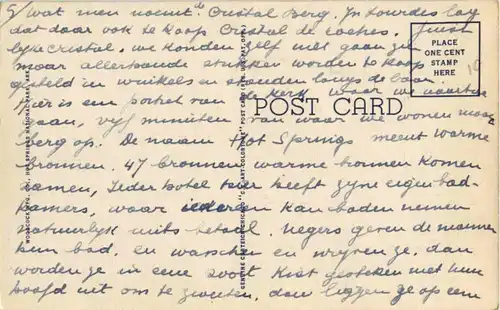 5/ wat men noemt de Cristal Berg. In Lourdes lag
dat daar ook te koop Cristal de roches.
lyke cristal. we konden zelf niet gaan zien
maar allerhande stukken worden te koop
gesteld in winkels en standen langs de baan.
Hier is een portret van de kerk waar we naartoe
gaan, vyf minuten van waar we wonen
berg op. De naam Hot Springs meent warme
bronnen. 47 bronnen warme bronnen komen
samen, Ieder hotel hier heeft zyne eigen bad-
kamers, waar iedereen kan baden nemen
natuurlyk mits betaal. negers geven de mannen
hun bad. en wasschen en wryven ze. dan
worden ze in eene soort Kist gestoken met hun
hoofd uit om te zweeten, dan liggen ze op een
POST CARD
PLACE
ONE CENT
STAMP
HERE
10